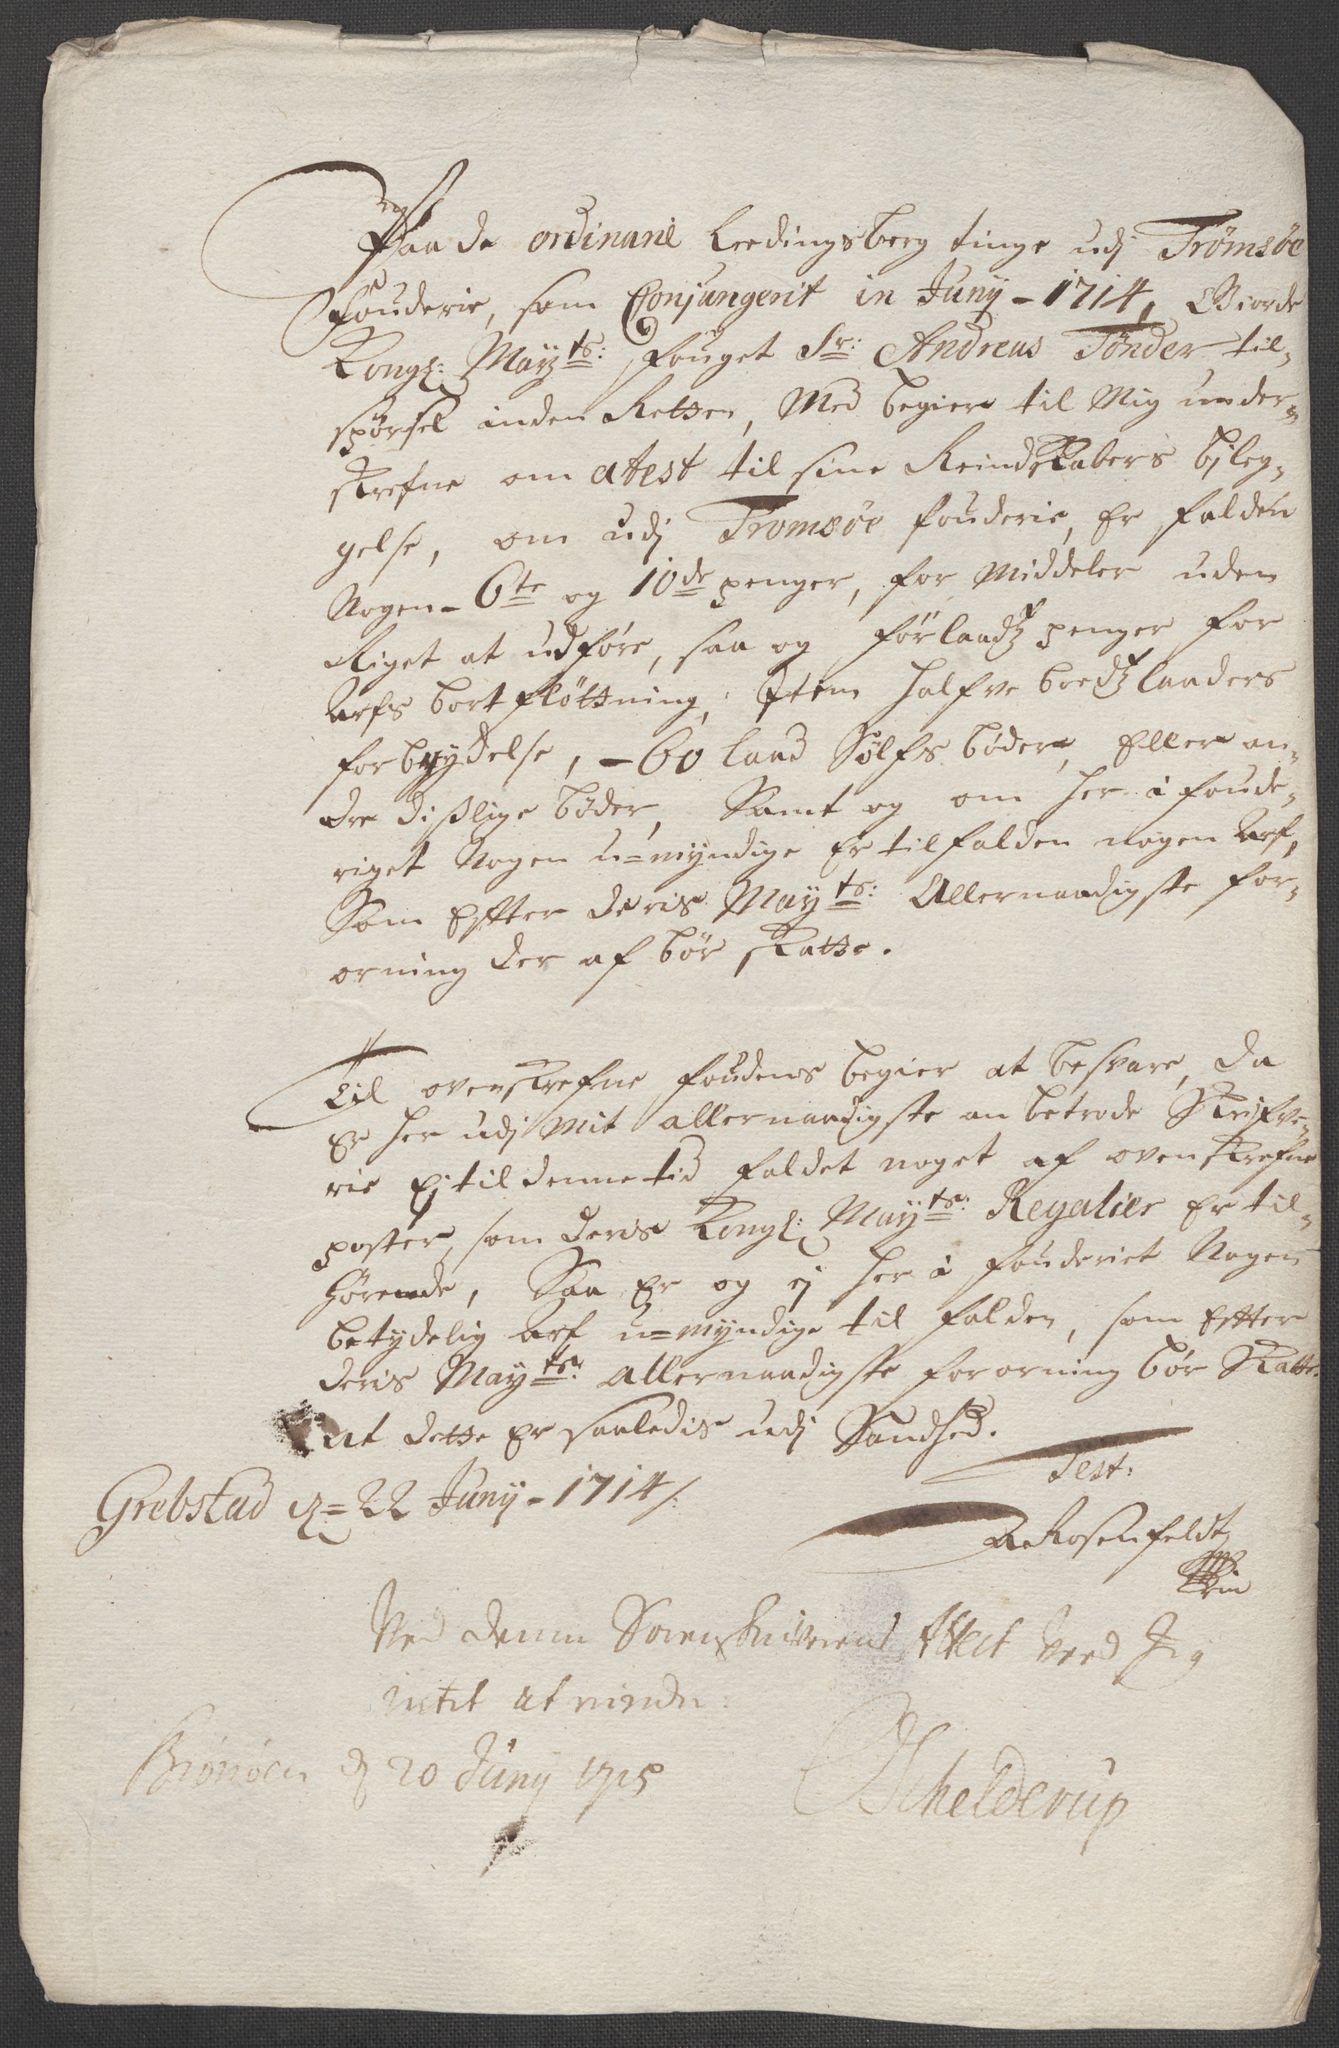 Paa de ordinarie Leedingsberg tinge udj Tromsøe
fouderie, som Conjungerit in Juny - 1714, Giorde
Kongl: Mayts: fouget Sr: Andreas Tønder til-
spørsel inden Retten, Med begier til Mig under-
skrefne om atest til sine Reindskabers bileg-
gelse, om udj Tromsøe fouderie, Er falden
Nogen - 6te og 10de penger, for Middeler uden
Riget at udføre, saa og førlaadz penger for
Arfs bortfløttning, Item halfve boedzlaaders
forbrydelse, - 60 laad Sølfs bøder, Eller an-
dre dislige bøder, Samt og om her i foude-
riget Nogen u=myndige Er tilfalden nogen Arf,
Som Efter deris Mayts: Allernaadigste for-
orning der af bør skatte.
Til ovenskrefne foudens begier at besvare, da
Er her udj Mit allernaadigste anbetrode Skrifve-
rie Ej til denne tid faldet noget af ovenskrefne
poster, som deris Kongl: Mayts: Regalier Er til-
hørende, Saa Er og ej her i fouderiet Nogen
betydelig Arf u=myndige til falden, som Efter
deris Mayts: Allernaadigste fororning bør Skatte.
at dette Er saaledis udj Sandhed.
Test:
Grebstad d= 22 Juny - 1714 /:
Rosenfeldt
Ved denne Sorenskriverens Attest Veed Jeg
intet at minde:
Brønøen d 20 Juny 1715
Schelderup